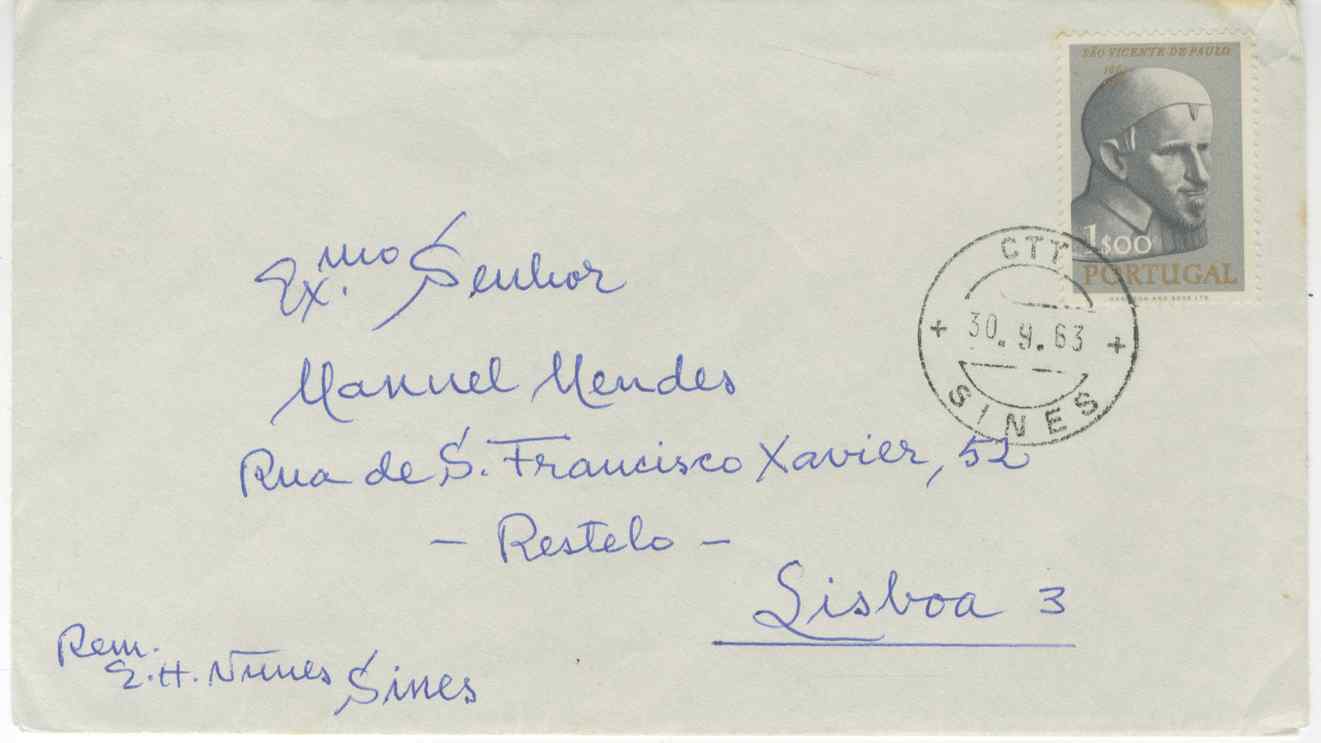 SÃO VICENTE DE PAULO
1$00
PORTUGAL
CTT
30. 9. 63
SINES
Ex.mo Senhor
Manuel Mendes
Rua de S. Francisco Xavier, 52
- Restelo -
Lisboa 3
Rem.
E. H. Nunes Sines